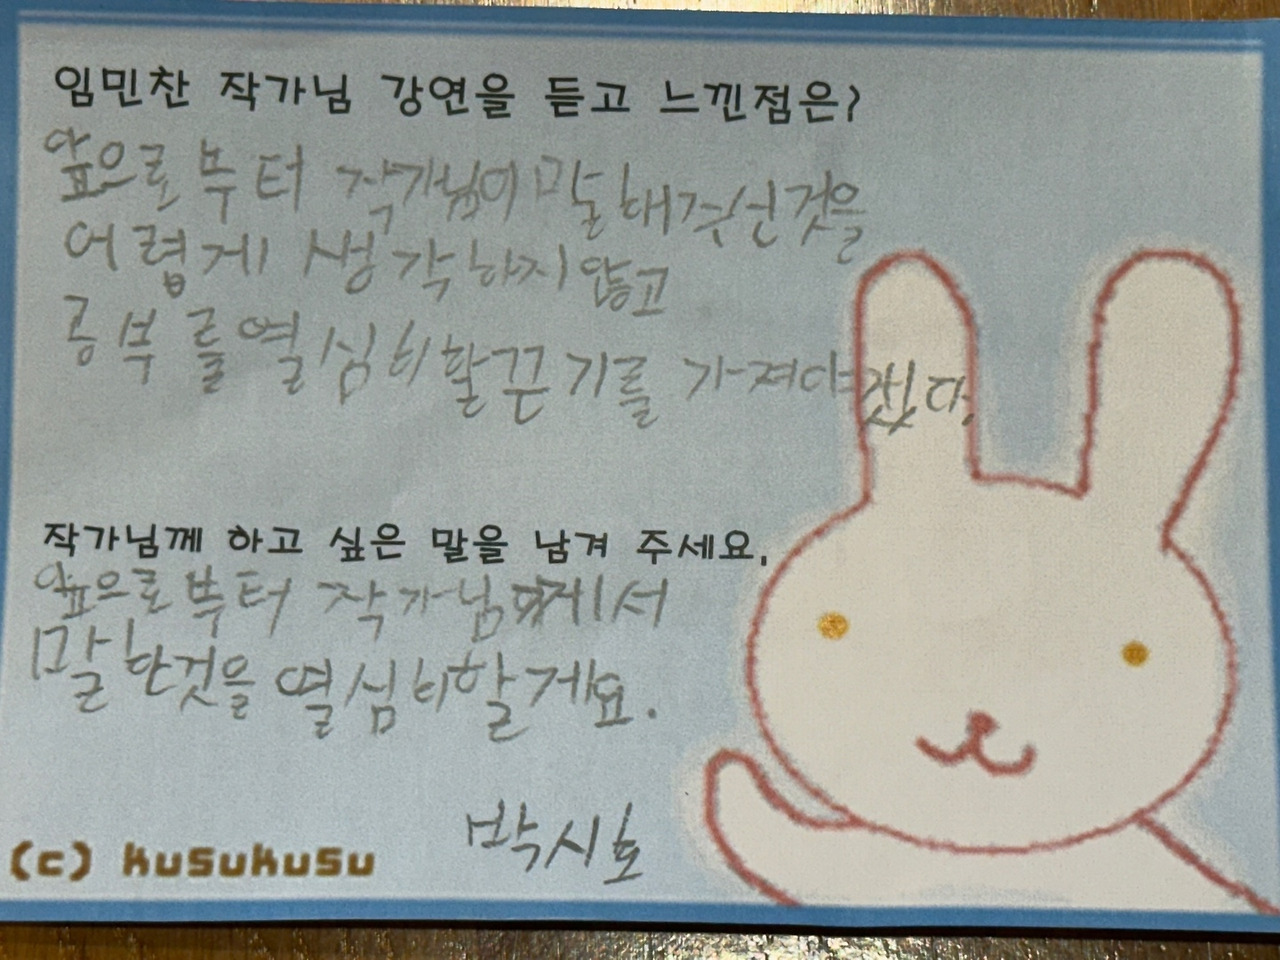 임민찬 작가님 강연을 듣고 느낀점은?
앞으로부터 작가님이 말해주신것을
어렵게 생각하지 않고
공부를 열심히 할 끈기를 가져야겠다.
작가님께 하고 싶은 말을 남겨 주세요.
앞으로부터 작가님께서
말한것을 열심히할게요.
박시호
(c) kusukusu